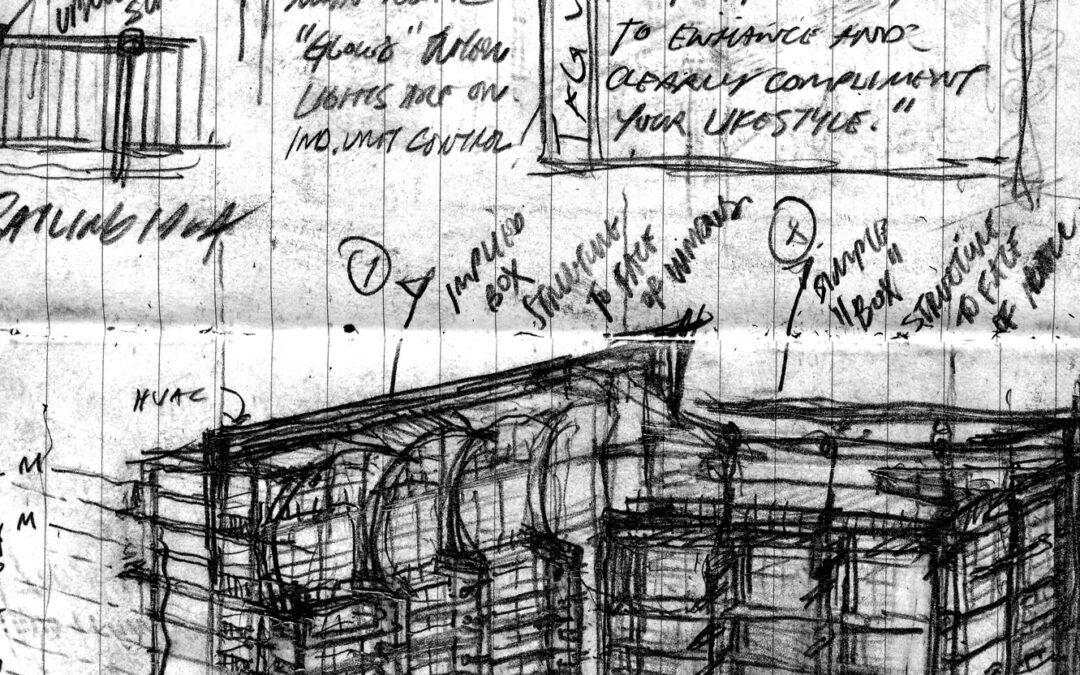 "GLOWS" WHEN
LIGHTS ARE ON.
IND. UNIT CONTROL
TAG
TO ENHANCE AND
CLEARLY COMPLIMENT
YOUR LIFESTYLE."
1
IMPLIED
BOX
STRUCTURE
TO FACE
OF
SIMPLE
"BOX"
STRUCTURE
TO FACE
OF
HVAC
M
M